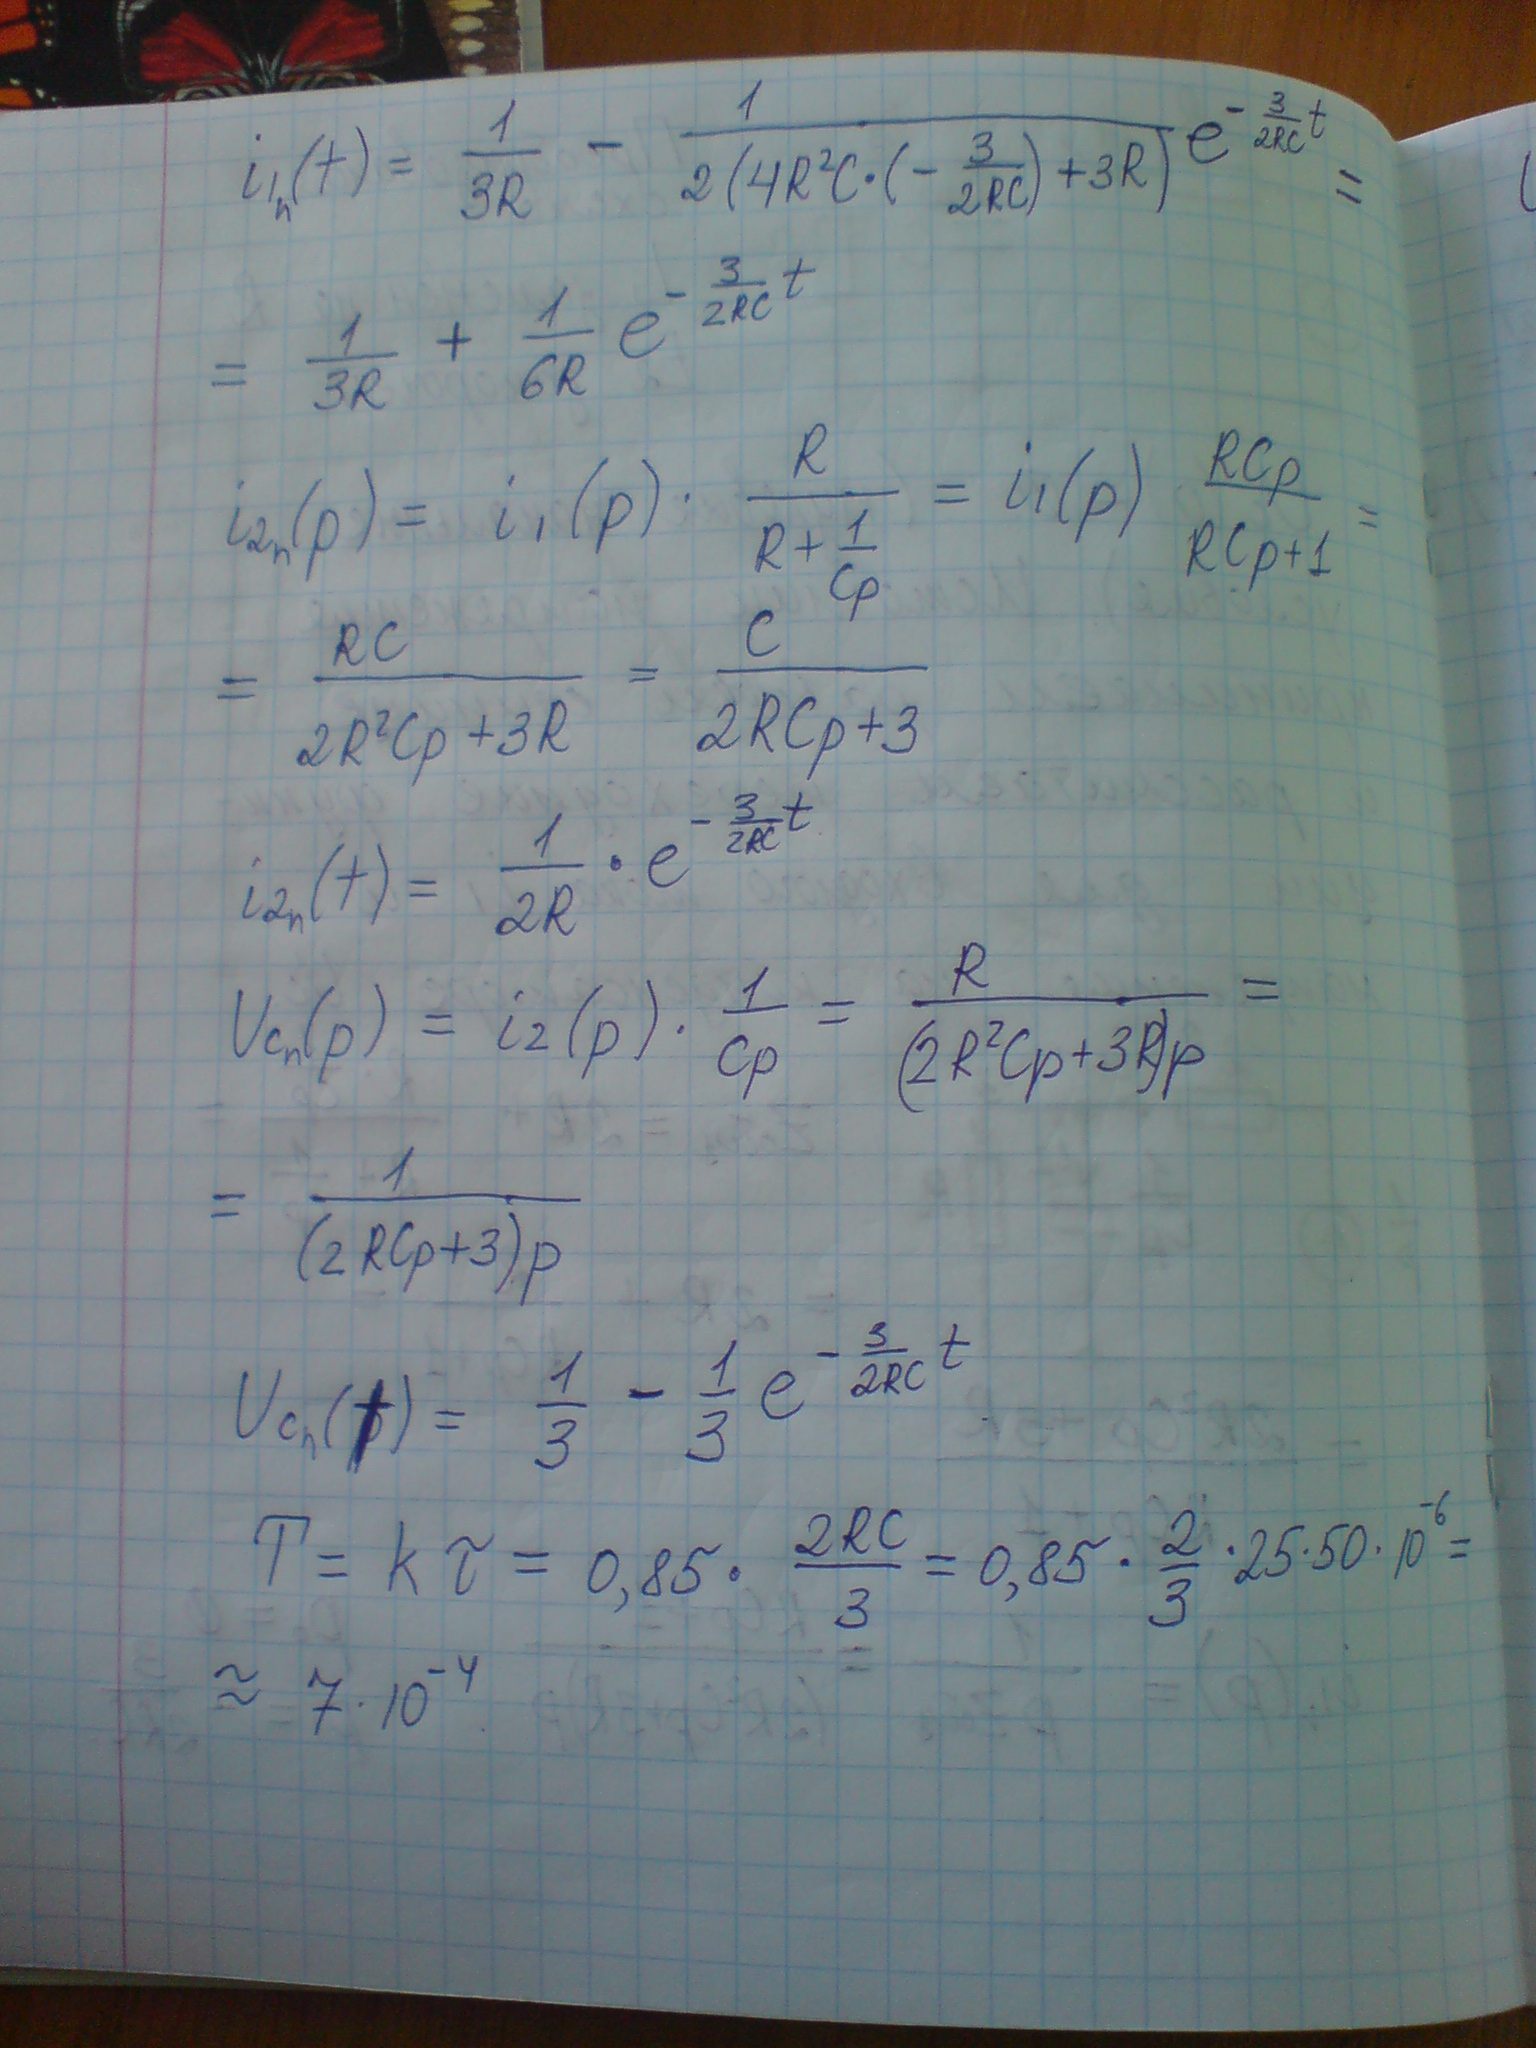 i₁ₙ(t) = 1/(3R) - 1/(2(4R²C·(-3/(2RC))+3R)) e^(-3/(2RC) t) =
= 1/(3R) + 1/(6R) e^(-3/(2RC) t)
i₂ₙ(p) = i₁(p) · R/(R+1/(Cp)) = i₁(p) RCp/(RCp+1) =
= RC/(2R²Cp+3R) = C/(2RCp+3)
i₂ₙ(t) = 1/(2R) · e^(-3/(2RC) t)
Ucₙ(p) = i₂(p) · 1/(Cp) = R/((2R²Cp+3R)p) =
= 1/((2RCp+3)p)
Ucₙ(t) = 1/3 - 1/3 e^(-3/(2RC) t)
T = kτ = 0,85 · 2RC/3 = 0,85 · 2/3 · 25·50·10⁻⁶ =
≈ 7·10⁻⁴